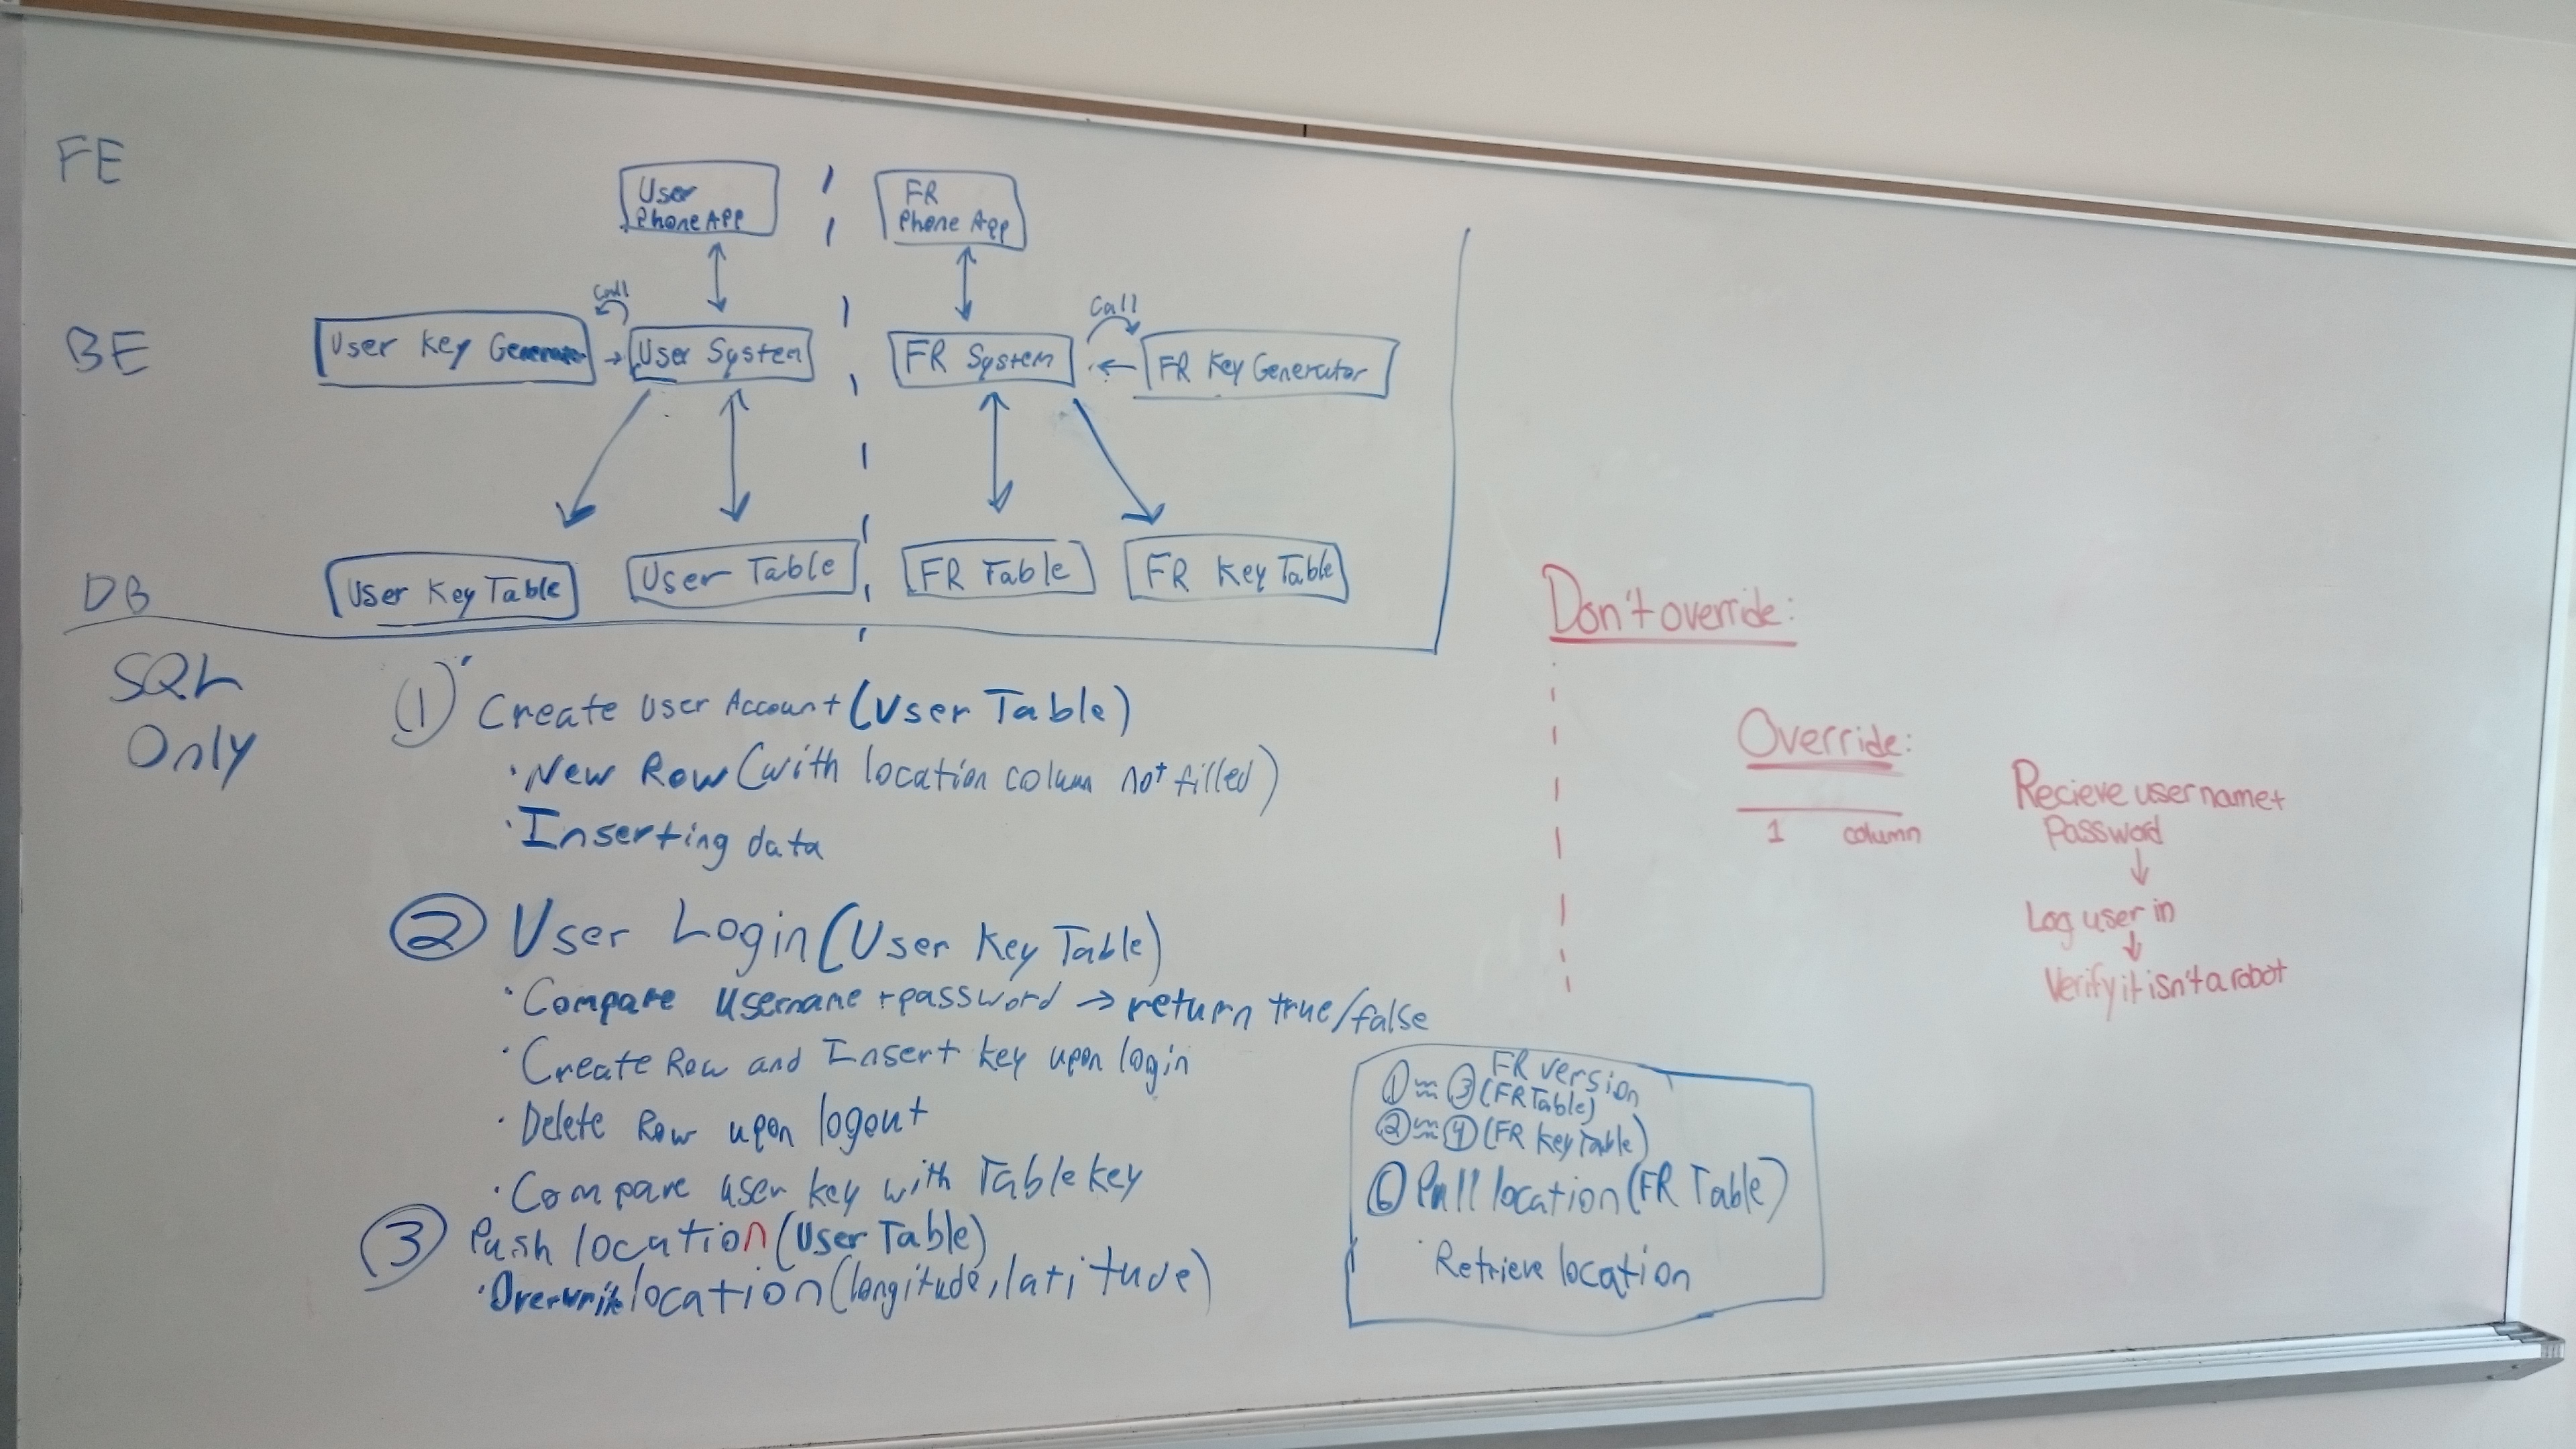 FE
User
Phone App
FR
Phone App
BE
Call
Call
User Key Generator
User System
FR System
FR Key Generator
DB
User Key Table
User Table
FR Table
FR Key Table
SQL
Only
① Create User Account (User Table)
· New Row (with location column not filled)
· Inserting data
② User Login (User Key Table)
· Compare username + password → return true/false
· Create Row and Insert key upon login
· Delete Row upon logout
· Compare user key with Table key
③ Push location (User Table)
· Overwrite location (longitude, latitude)
FR version
① ≈ ③ (FR Table)
② ≈ ④ (FR Key Table)
⑥ Pull location (FR Table)
· Retrieve location
Don't override:
Override:
1 column
Recieve username +
Password
↓
Log user in
↓
Verify it isn't a robot